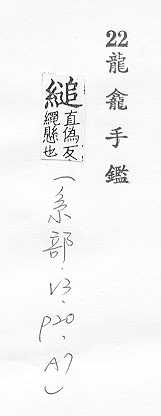 22龍龕手鑑
縋直偽反繩懸也
(糸部.V3.P20.A7)